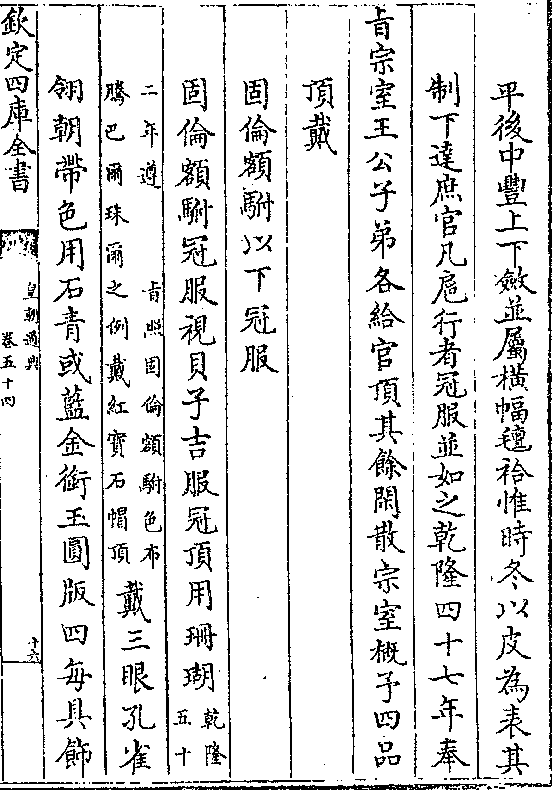 平後中豐上下斂並屬橫幅氊袷惟時冬以皮為表其
制下達庶官凡扈行者冠服並如之乾隆四十七年奉
旨宗室王公子弟各給官頂其餘閑散宗室概予四品
頂戴
固倫額駙以下冠服
固倫額駙冠服視貝子吉服冠頂用珊瑚
乾隆
五十
二年遵 旨照固倫額駙色布
騰巴爾珠爾之例戴紅寶石帽頂
戴三眼孔雀
翎朝帶色用石青或藍金銜玉圓版四每具飾
欽定四庫全書
皇朝通典
卷五十四
十六